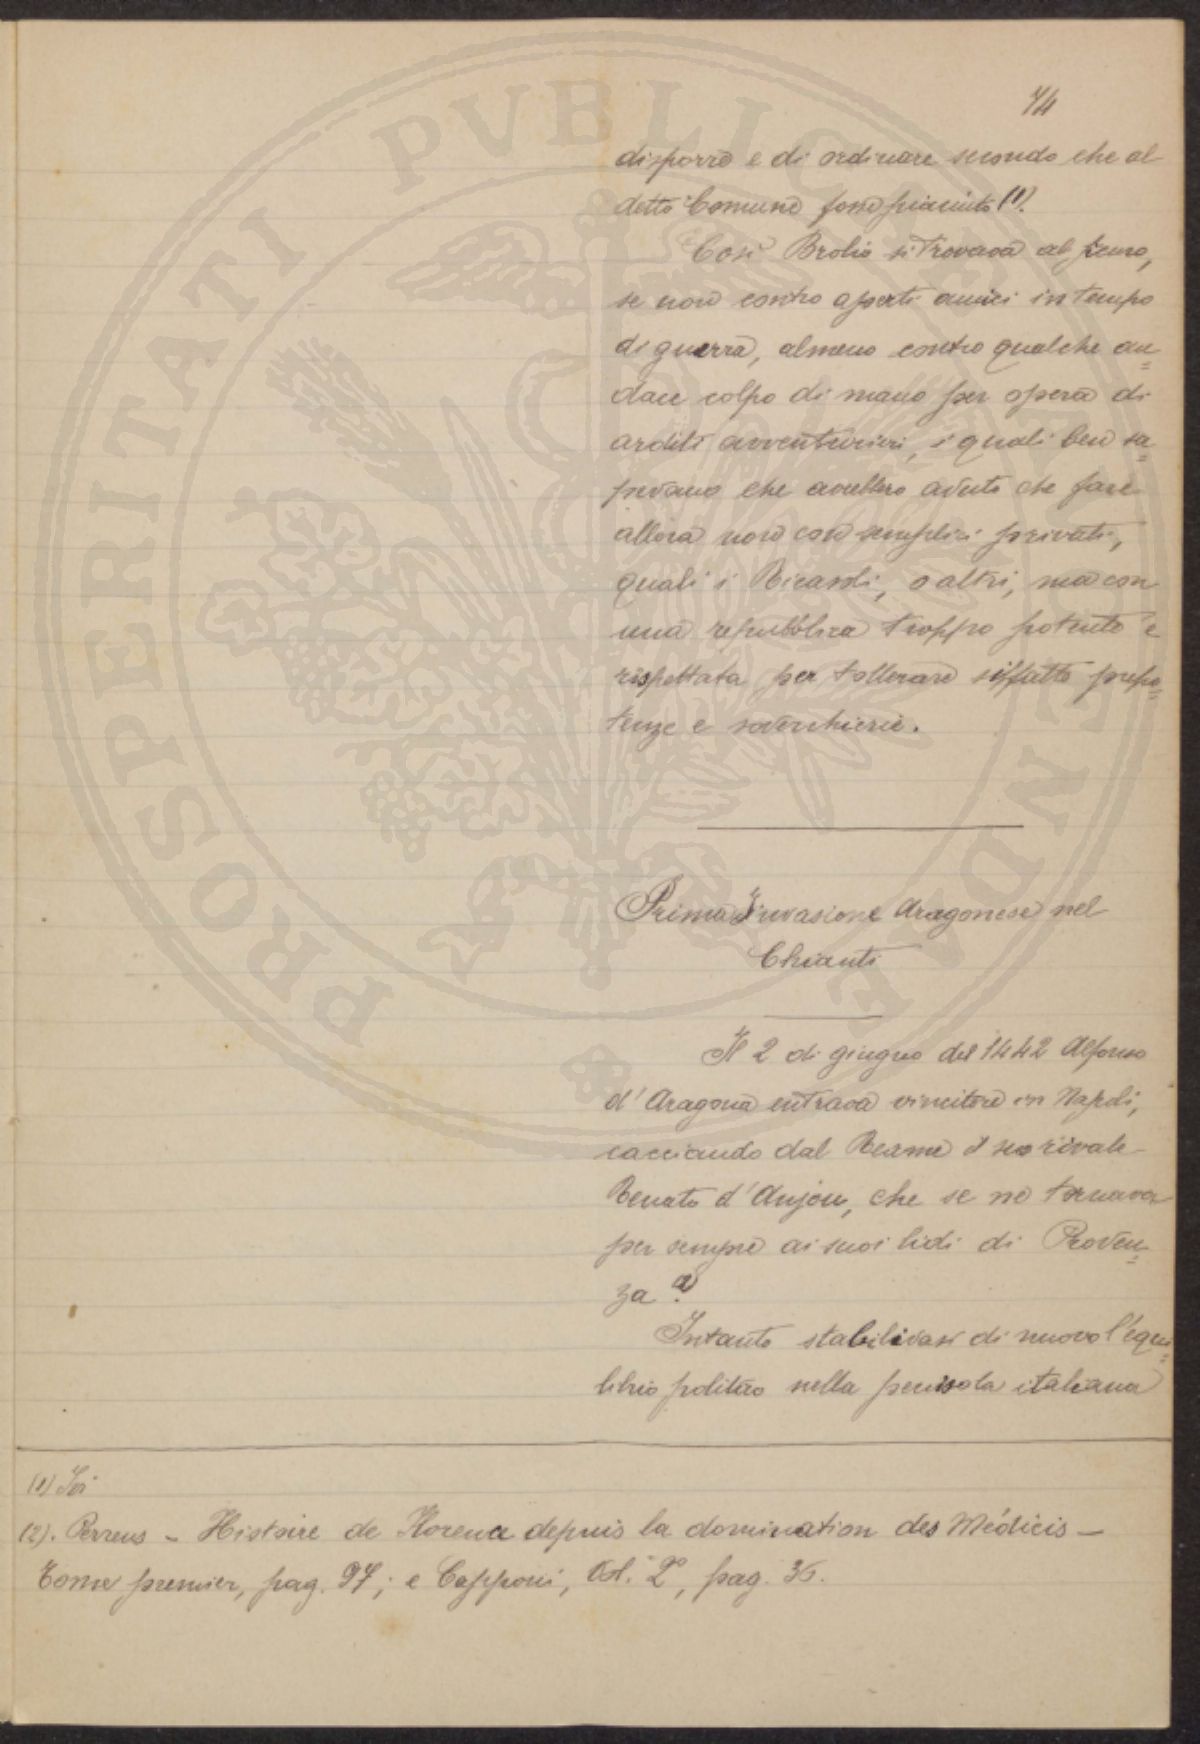 74
disporre e di ordinare secondo che al
detto Comune fosse piaciuto (1).
Così Brolio si trovava al sicuro,
se non contro aperti nemici in tempo
di guerra, almeno contro qualche au=
dace colpo di mano per opera di
arditi avventurieri, i quali ben sa=
pevano che avrebbero avuto che fare
allora non con semplici privati,
quali i Ricasoli, o altri, ma con
una repubblica troppo potente e
rispettata per tollerare siffatte prepo=
tenze e soverchierie.
Prima Invasione Aragonese nel
Chianti
Il 2 di giugno del 1442 Alfonso
d'Aragona entrava vincitore in Napoli,
cacciando dal Reame il suo rivale
Renato d'Anjou, che se ne tornava
per sempre ai suoi lidi di Proven=
za
Intanto stabilivasi di nuovo l'equi=
librio politico nella penisola italiana
(1) Ivi
(2). Perrens - Histoire de Florence depuis la domination des Médicis -
Tome premier, pag. 97; e Capponi, Vol. 2º, pag. 36.
PROSPERITATI PVBLICAE AVGENDAE